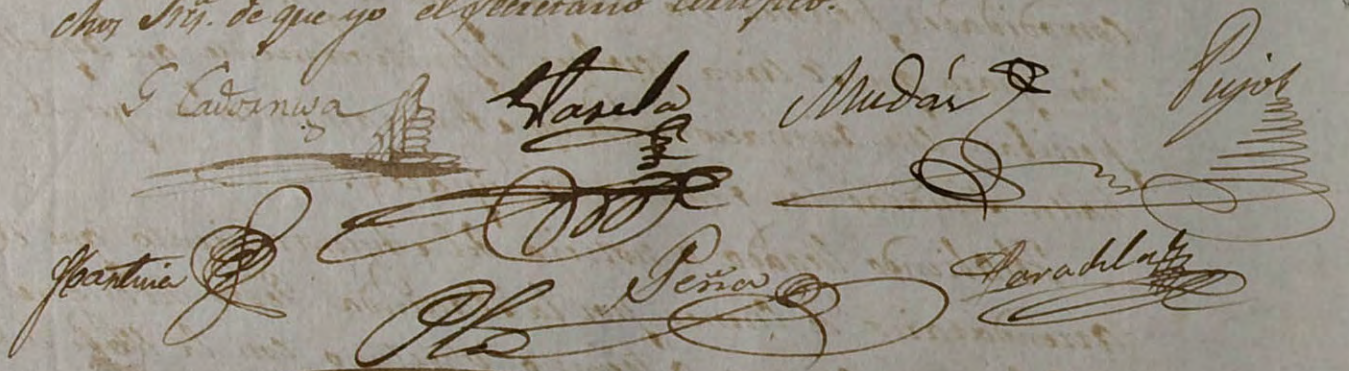 chos Srs. de que yo el Secretario certifico.
G Cadorniga Varela Mudár Pujol
Santuia Pla Peña Taradelas